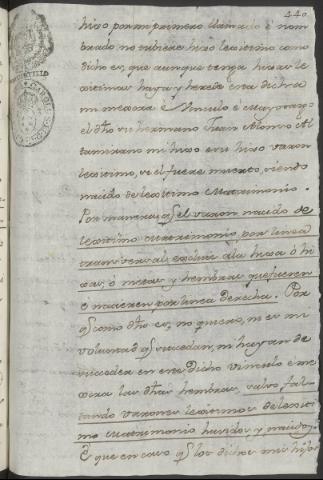 440
hijo por mi primero llamado é nom-
brado no tubiere hijo lexitimo como
dicho es, que aunque tenga hijas le-
xitimas haya y herede esta dicha
mi mexora é Vinculo é Mayorazgo
el dho su hermano Juan Alonso Al-
tamirano mi hijo ó su hijo varon
lexitimo, si el fuere muerto, siendo
nacido de lexitimo Matrimonio.
Por manera q̃ el varon nacido de
lexitimo matrimonio por linea
transversal excluie á la hija ó hi-
jas, ó nietas y hembras que fueren
é nacieren por linea derecha. Por
q̃ como dho es, no quiero, ni es mi
voluntad q̃ sucedan, ni hayan de
suceder en este dicho vinculo é me-
xora las dhas hembras, salvo fal-
tando varones lexitimos de lexiti-
mo Matrimonio havidos y nacidos.
É que en caso q̃ los dichos mis hijos